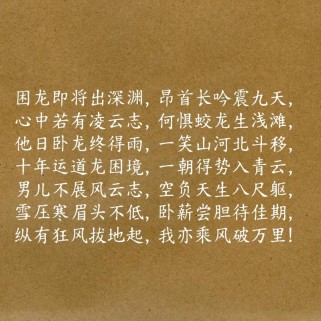 困龙即将出深渊，昂首长吟震九天，
心中若有凌云志，何惧蛟龙生浅滩，
他日卧龙终得雨，一笑山河北斗移，
十年运道龙困境，一朝得势入青云，
男儿不展风云志，空负天生八尺躯，
雪压寒眉头不低，卧薪尝胆待佳期，
纵有狂风拔地起，我亦乘风破万里！